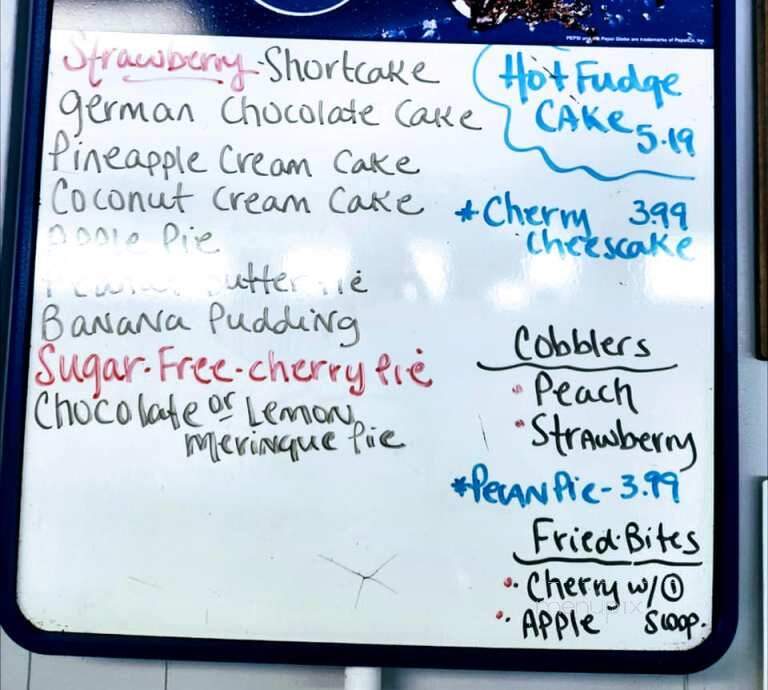 Strawberry-Shortcake
german Chocolate Cake
Pineapple Cream Cake
Coconut Cream Cake
Apple Pie
Peanut Butter Pie
BANANA Pudding
Sugar-Free-cherry Pie
Chocolate or Lemon
Meringue Pie
Hot Fudge
CAKe 5.19
*Cherry 3.99
Cheescake
Cobblers
• Peach
• Strawberry
*PecAN Pie- 3.99
Fried-Bites
• Cherry w/①
• APPle Scoop.
menupix